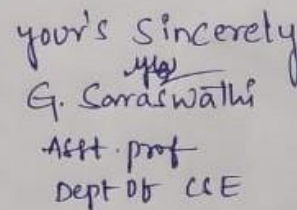 your's Sincerely
G. Saraswathi
Asst. prof
Dept Of CSE